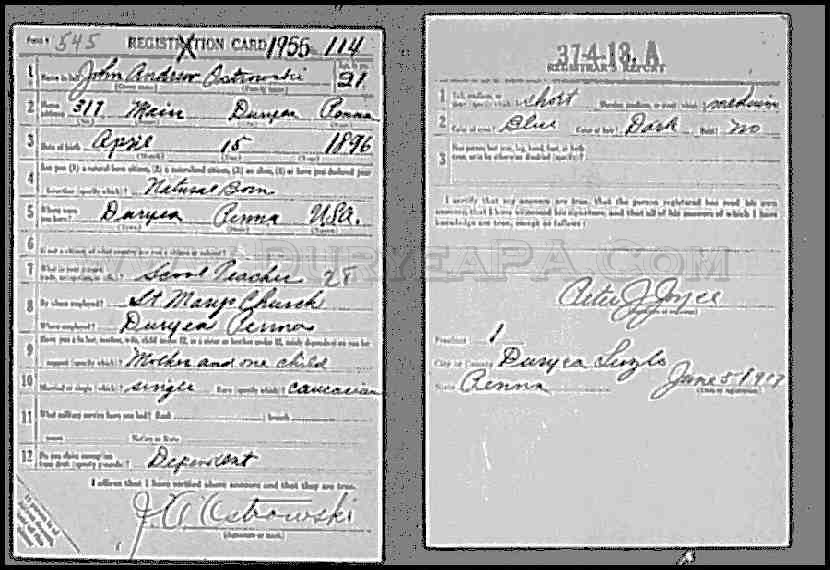 Form 1 545 REGISTRATION CARD 1955 114
1 Name in full John Anderson Ostrowski Age, in yrs. 21
(Given name) (Family name)
2 Home address 317 Main Duryea Penna
(No.) (Street) (City) (State)
3 Date of birth April 15 1896
(Month) (Day) (Year)
4 Are you (1) a natural born citizen, (2) a naturalized citizen, (3) an alien, (4) or have you declared your
intention (specify which)? Natural Born
5 Where were you born? Duryea Penna USA.
(Town) (State) (Nation)
6 If not a citizen, of what country are you a citizen or subject?
7 What is your present trade, occupation, or office? Scool Teacher 28
8 By whom employed? St Marys Church
Where employed? Duryea Penna
9 Have you a father, mother, wife, child under 12, or a sister or brother under 12, solely dependent on you for
support (specify which)? Mother and one child
10 Married or single (which)? single Race (specify which)? caucasian
11 What military service have you had? Rank branch
years Nation or State
12 Do you claim exemption from draft (specify grounds)? Dependent
I affirm that I have verified above answers and that they are true.
J A Ostrowski
(Signature or mark)
37-4-13. A
REGISTRAR'S REPORT
1 Tall, medium, or short (specify which)? short Slender, medium, or stout (which)? medium
2 Color of eyes? Blue Color of hair? Dark Bald? no
3 Has person lost arm, leg, hand, foot, or both
eyes, or is he otherwise disabled (specify)?
I certify that my answers are true, that the person registered has read his own
answers, that I have witnessed his signature, and that all of his answers of which I have
knowledge are true, except as follows:
WWW.DURYEAPA.COM
Peter J Joyce
(Signature of registrar)
Precinct 1
City or County Duryea Luzle
State Penna June 5/1917
(Date of registration)